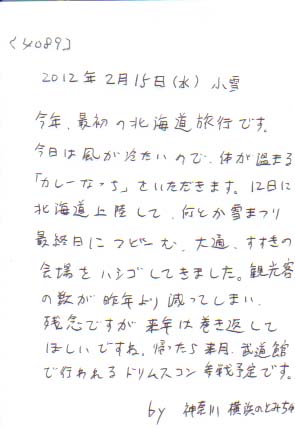 [4089]
2012年2月15日(水) 小雪
今年、最初の北海道旅行です。
今日は風が冷たいので、体が温まる
「カレーなっち」をいただきます。12日に
北海道上陸して、何とか雪まつり
最終日にマビーむ、大通、すすきの
会場をハシゴしてきました。観光客
の数が昨年より減ってしまい、
残念ですが来年は巻き返して
ほしいですね。帰ったら来月、武道館
で行われるドリムスコン参戦予定です。
by 神奈川 横浜のとみちゃ